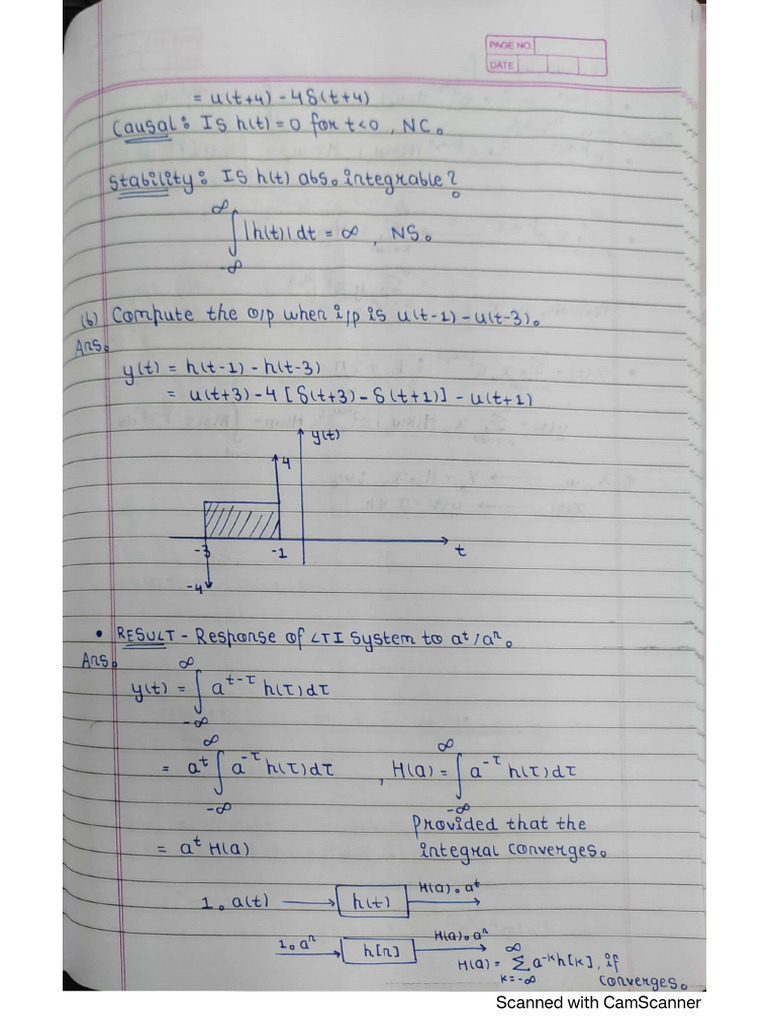 PAGE NO.
DATE
= u(t+4) - 4δ(t+4)
Causal: Is h(t) = 0 for t<0, NC.
Stability: Is h(t) abs. integrable?
∫_{-∞}^{∞} |h(t)| dt = ∞, NS.
(b) Compute the o/p when i/p is u(t-1) - u(t-3).
Ans.
y(t) = h(t-1) - h(t-3)
= u(t+3) - 4 [δ(t+3) - δ(t+1)] - u(t+1)
y(t)
4
-3 -1 t
-4
• RESULT - Response of LTI System to a^t / a^n.
Ans.
y(t) = ∫_{-∞}^{∞} a^{t-τ} h(τ) dτ
= a^t ∫_{-∞}^{∞} a^{-τ} h(τ) dτ , H(a) = ∫_{-∞}^{∞} a^{-τ} h(τ) dτ
Provided that the
= a^t H(a) integral converges.
1. a(t) → h(t) → H(a). a^t
1. a^n → h[n] → H(a). a^n
H(a) = Σ_{k=-∞}^{∞} a^{-k} h[k], if
converges.
Scanned with CamScanner